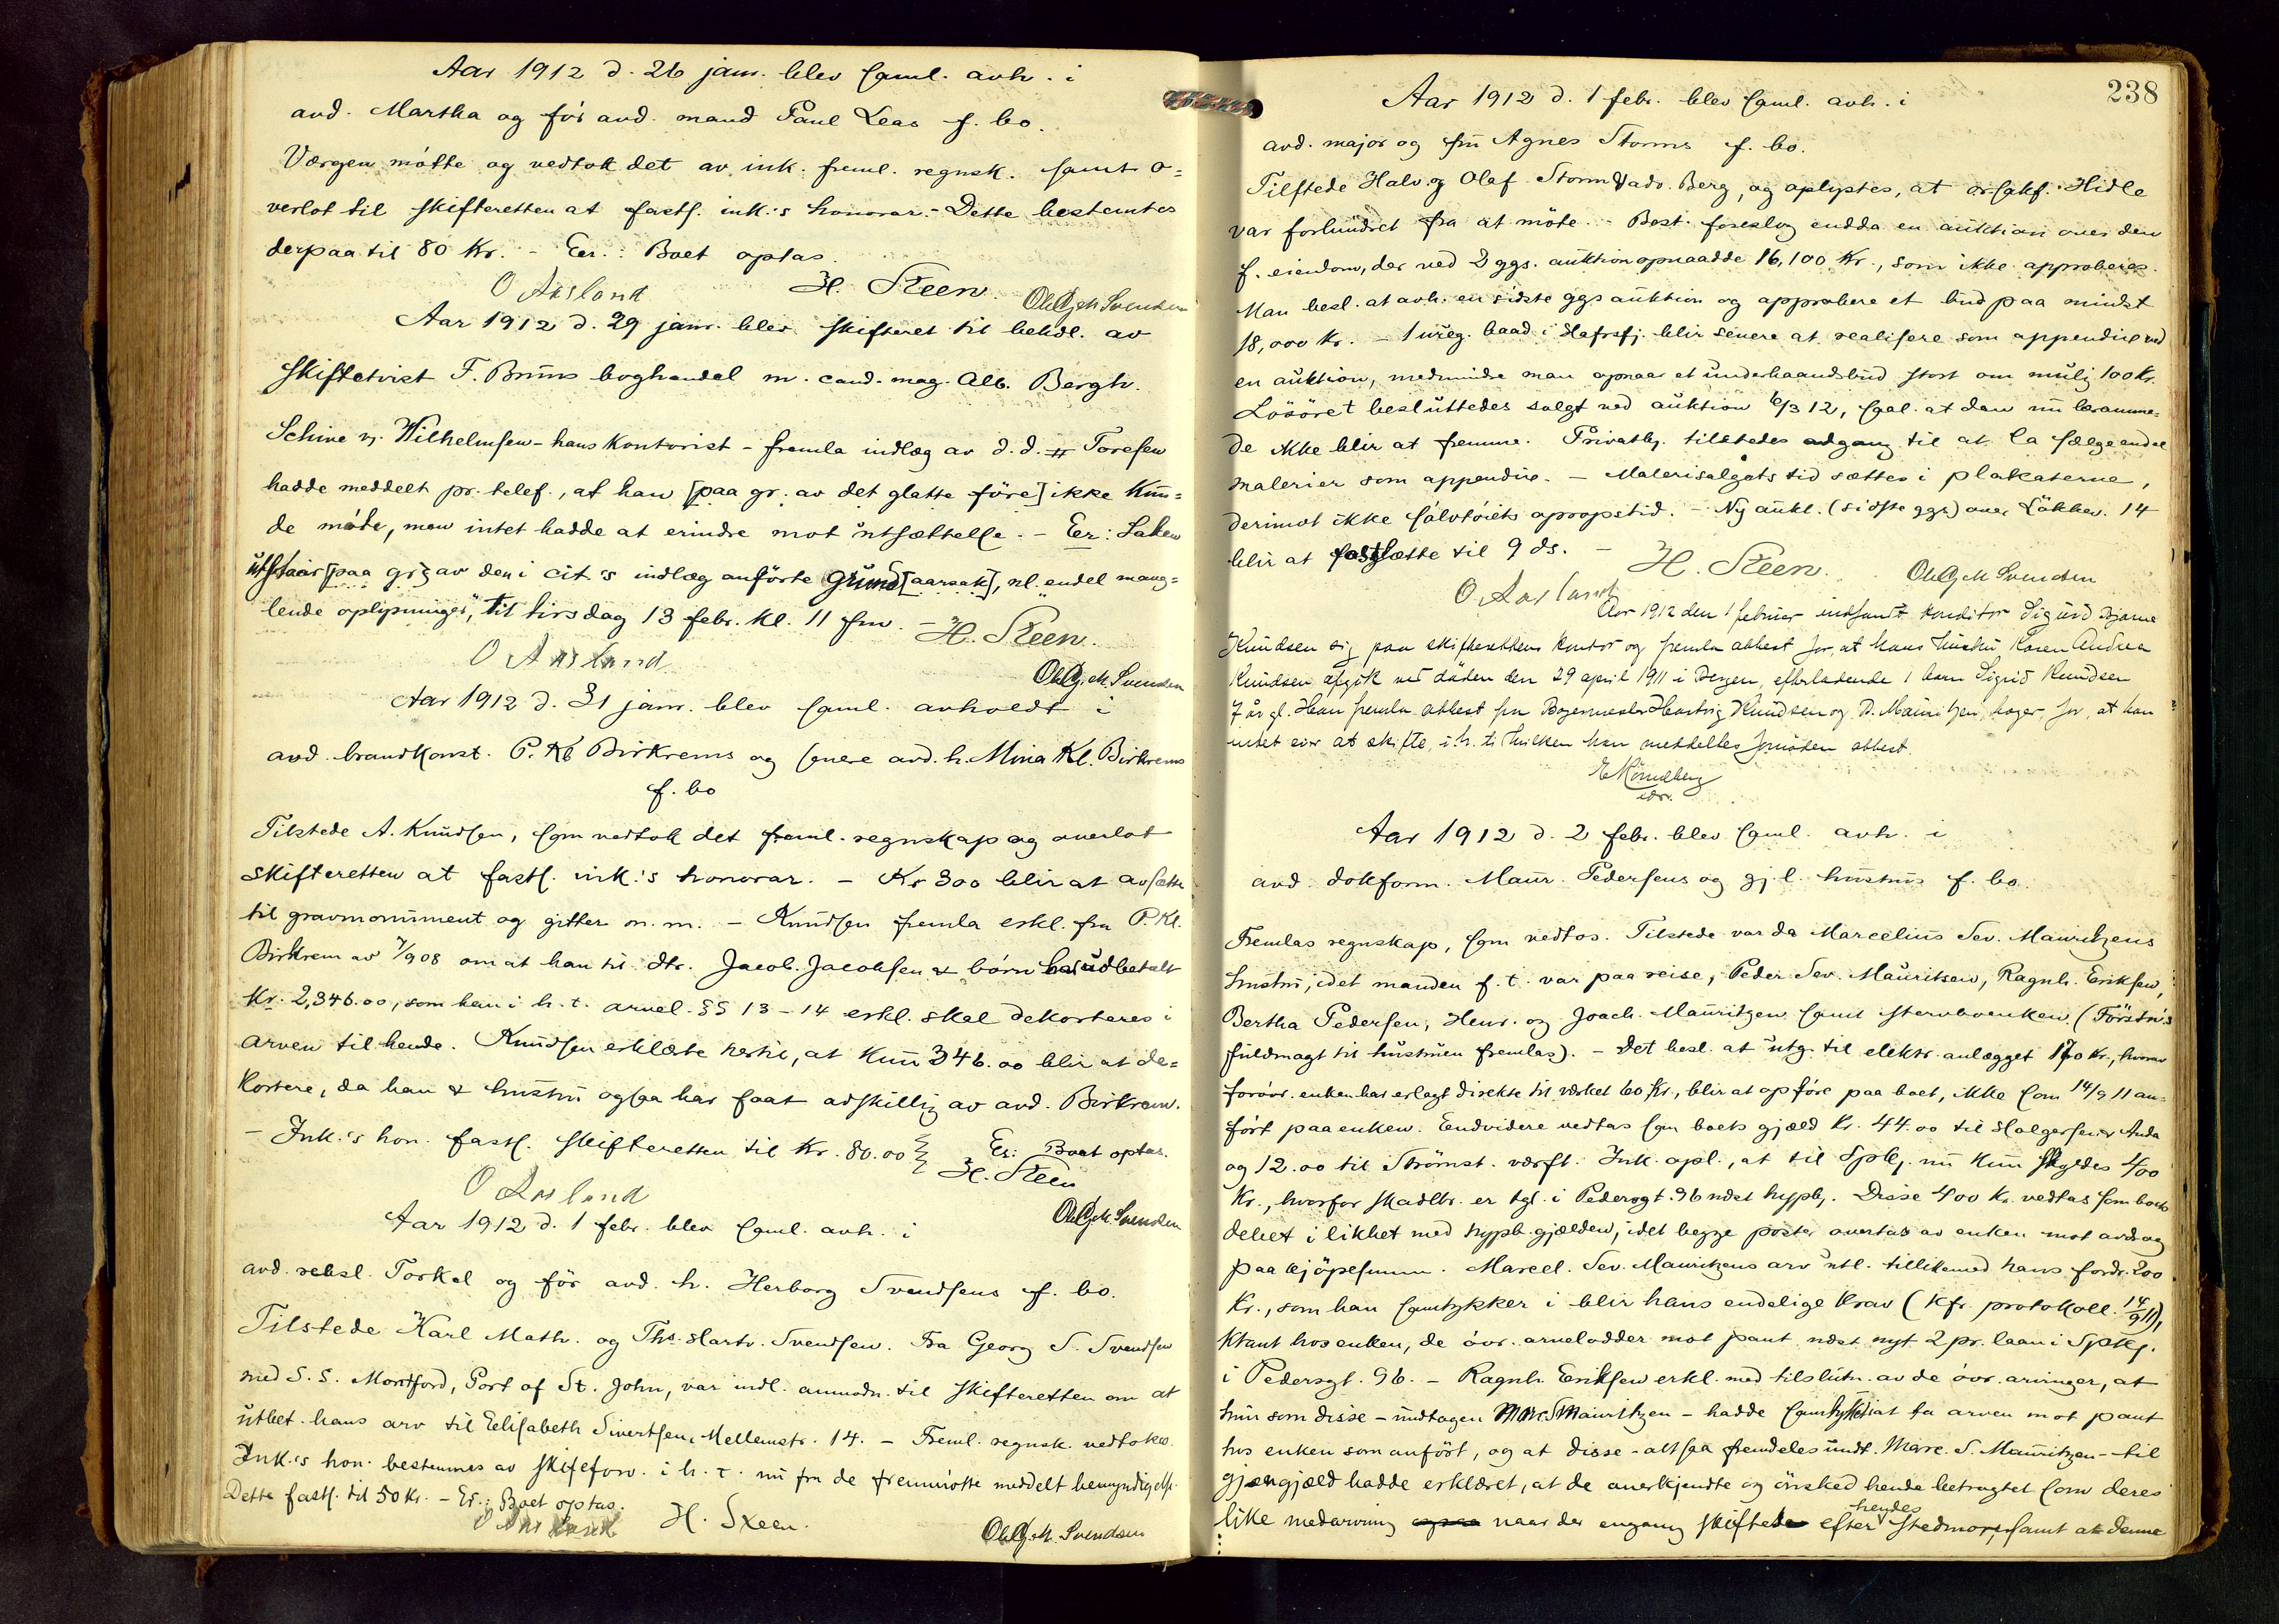 Aar 1912 d. 26 janr. blev saml. avh. i
avd. Martha og før avd. mand Paul Leas f. bo.
Værgen mötte og vedtok det av ink. freml. regnsk. samt o-
verlot til skifteretten at fasts. ink.'s honorar. - Dette bestemtes
derpaa til 80 Kr. - Eer.: Boet optas.
O Aasland H. Steen. Svendsen
Aar 1912 d. 29 janr. blev skifteret til behdl. av
skiftetvist F. Bruns boghandel m. cand. mag. Alb. Bergh.
Schine v. Wilhelmsen - hans kontorist - fremla indlæg av d.d. Toresen
hadde meddelt pr. telef., at han [paa gr. av det glatte före] ikke kun-
de möte, men intet hadde at erindre mot utsættelse. - Eer: Saken
utstaar [paa gr] av den i cit's indlæg anførte grund [aarsak], nl. "endel mang-
lende oplysninger", til tirsdag 13 febr. kl. 11 fm. - H. Steen.
O Aasland
Svendsen
Aar 1912 d. 31 janr. blev saml. avholdt i
avd. brandkonst. P. Kl. Birkrems og senere avd. h. Mina Kl. Birkrems
f. bo
Tilstede A. Knudsen, som vedtok det freml. regnskap og overlot
skifteretten at fasts. ink.'s honorar. - Kr 300 blir at avsætte
til gravmonument og gitter m.m. - Knudsen fremla erkl. fra P. Kl.
Birkrem av 908 om at han til dtr. Jacob. Jacobsen & börn har udbetalt
Kr. 2,346.00, som han i h. t. arvel. §§ 13-14 erkl. skal dekorteres i
arven til hende. Knudsen erklærte hertil, at kun 346.00 blir at de-
kortere, da han & hustru ogsaa har faat adskillig av avd. Birkrem.
- Ink.'s hon. fasts. skifteretten til Kr. 80.00 Er: Boet optas.
O Aasland H. Steen
Svendsen
Aar 1912 d. 1 febr. blev saml. avh. i
avd. rebsl. Torkel og för avd. h. Herborg Svendsens f. bo.
Tilstede Karl Math. og Ths. Hartv. Svendsen. Fra Georg S. Svendsen
med S.S. Montford, Port of St. John, var indl. anmodn. til skifteretten om at
utbet. hans arv til Eelisabeth Sivertsen, Mellemstr. 14. - Freml. regnsk. vedtokes.
Ink.'s hon. bestemmes av skiftefor. i h. t. nu fra de fremmötte meddelt bemyndigelse.
Dette fasts. til 50 Kr. - Er.: Boet optas.
O Aasland H. Steen. Svendsen
238
Aar 1912 d. 1 febr. blev saml. avh. i
avd. major og fru Agnes Storms f. bo.
Tilstede Halv. og Olaf Storm & adv. Berg, og oplystes, at orsakf. Hidle
var forhindret fra at möte. - Best. foreslog endda en auktion over den
f. eiendom, der ved 2 ggs. auktion opnaadde 16,100 Kr., som ikke approberes.
Man besl. at avh. en sidste ggs auktion og approbere et bud paa mindst
18,000 Kr. - 1 ureg. baad i Hafrsfj. blir senere at realisere som appendix ved
en auktion, medmindre man opnaar et underhaandsbud stort om mulig 100 Kr.
Lösöret besluttedes solgt ved auktion 6/3 12, saal. at den nu beramme-
de ikke blir at fremme. Privatbg. tilstedes adgang til at la sælge endel
malerier som appendix. - Malerisalgets tid sættes i plakaterne,
derimot ikke sölvtöiets opropstid. - Ny aukt. (sidste ggs) over Lökkev. 14
blir at fastsætte til 9 ds. - H. Steen. Svendsen
O Aasland
Aar 1912 den 1 februar indfandt konditor Sigurd Bjarne
Knudsen sig paa skifterettens kontor og fremla attest for, at hans hustru Karen Andrea
Knudsen afgik ved döden den 29 april 1911 i Bergen, efterladende 1 barn Sigrid Knudsen
7 år gl. Han fremla attest fra Bagermester Hartvig Knudsen og D. Mauritzen, bager, for, at han
intet eier at skifte, i h. t. hvilken han meddeltes fornöden attest.
Aar 1912 d. 2 febr. blev saml. avh. i
avd. dokform. Maur. Pedersens og gj. l. hustrus f. bo.
Fremlas regnskap, som vedtos. Tilstede var da Marcelius Sev. Mauritzens
hustru, idet manden f. t. var paa reise, Peder Sev. Mauritsen, Ragnh. Eriksen,
Bertha Pedersen, Henr. og Joach. Mauritzen samt stervboenken. (Förstn's
fuldmagt til hustruen fremlas). - Det besl. at utg. til elektr. anlægget 170 Kr., hvorav
forövr. enken har erlagt direkte til verket 60 Kr., blir at opföre paa boet, ikke som 14/9 11 an-
fört paa enken. Endvidere vedtas som boets gjæld Kr. 44.00 til Holgersen & Anda
og 12.00 til Strömst. verft. Ink. opl., at til Spbk. nu kun skyldes 400
Kr., hvorfor skadlbr. er tgl. i Pedersgt. 96 ndst. hypbk. Disse 400 Kr. vedtas som boets
debet i likhet med hypbk. gjælden, idet begge poster overtas av enken mot avdrag
paa kjöpesumm. Marcel. Sev. Mauritzens arv utl. tillikemed hans fordr. 200
Kr., som han samtykker i blir hans endelige krav (kfr. protokoll. 14/9 11),
ktant hos enken, de övr. arvelodder mot pant ndst. nyt 2 pr. laan i Spbk.
i Pedersgt. 96. - Ragnh. Eriksen erkl. med tilslutn. av de övr. arvinger, at
hun som disse - undtagen Marc. S Mauritzen - hadde samtykket i at ta arven mot pant
hos enken som anfört, og at disse - altsaa fremdeles undt. Marc. S. Mauritzen - til
gjængjæld hadde erklæret, at de anerkjendte og önsked hende betragtet som deres
like medarving naar der engang skiftede efter hendes stedmor, samt at denne